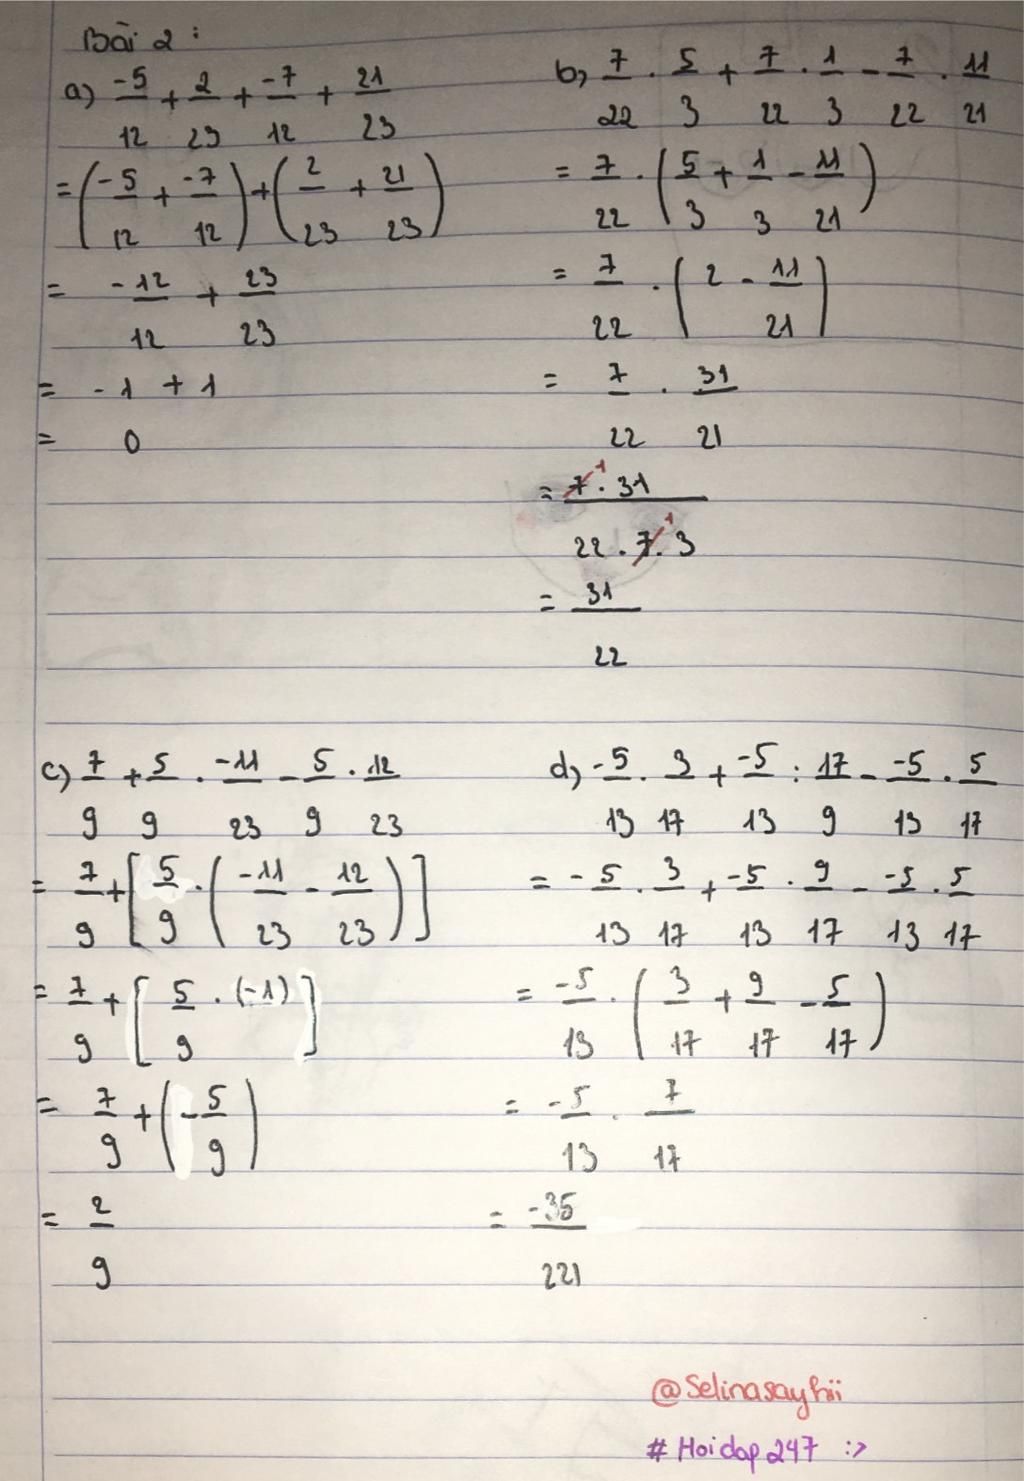 Bài 2:
a) -5/12 + 2/23 + -7/12 + 21/23
= (-5/12 + -7/12) + (2/23 + 21/23)
= -12/12 + 23/23
= -1 + 1
= 0
b) 7/22 . 5/3 + 7/22 . 1/3 - 7/22 . 11/21
= 7/22 . (5/3 + 1/3 - 11/21)
= 7/22 . (2 - 11/21)
= 7/22 . 31/21
= 7 1 . 31 / 22 . 7 1 . 3
= 31/22
c) 7/9 + 5/9 . -11/23 - 5/9 . 12/23
= 7/9 + [5/9 . (-11/23 - 12/23)]
= 7/9 + [5/9 . (-1)]
= 7/9 + (-5/9)
= 2/9
d) -5/13 . 3/17 + -5/13 : 17/9 - -5/13 . 5/17
= -5/13 . 3/17 + -5/13 . 9/17 - -5/13 . 5/17
= -5/13 . (3/17 + 9/17 - 5/17)
= -5/13 . 7/17
= -35/221
@Selinasayhii
# Hoidap247 :>